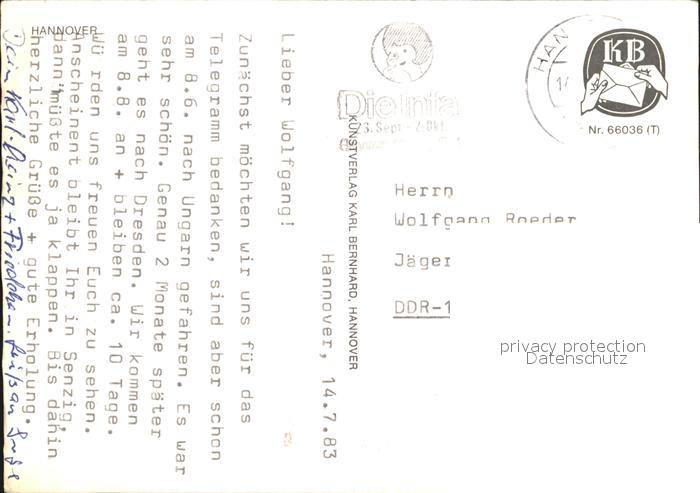 HANNOVER
Hannover, 14.7.83
Lieber Wolfgang!
Zunächst möchten wir uns für das
Telegramm bedanken, sind aber schon
am 8.6. nach Ungarn gefahren. Es war
sehr schön. Genau 2 Monate später
geht es nach Dresden. Wir kommen
am 8.8. an + bleiben ca. 10 Tage.
Wü rden uns freuen Euch zu sehen.
Anscheinent bleibt Ihr in Senzig,
dann müßte es ja klappen. Bis dahin
herzliche Grüße + gute Erholung.
Dein Karl-Heinz +
KUNSTVERLAG KARL BERNHARD, HANNOVER
Die Infa
23. Sept.-2. Okt.
HAN
KB
Nr. 66036 (T)
Herrn
Wolfgang Roeder
Jäger
DDR-1
privacy protection
Datenschutz